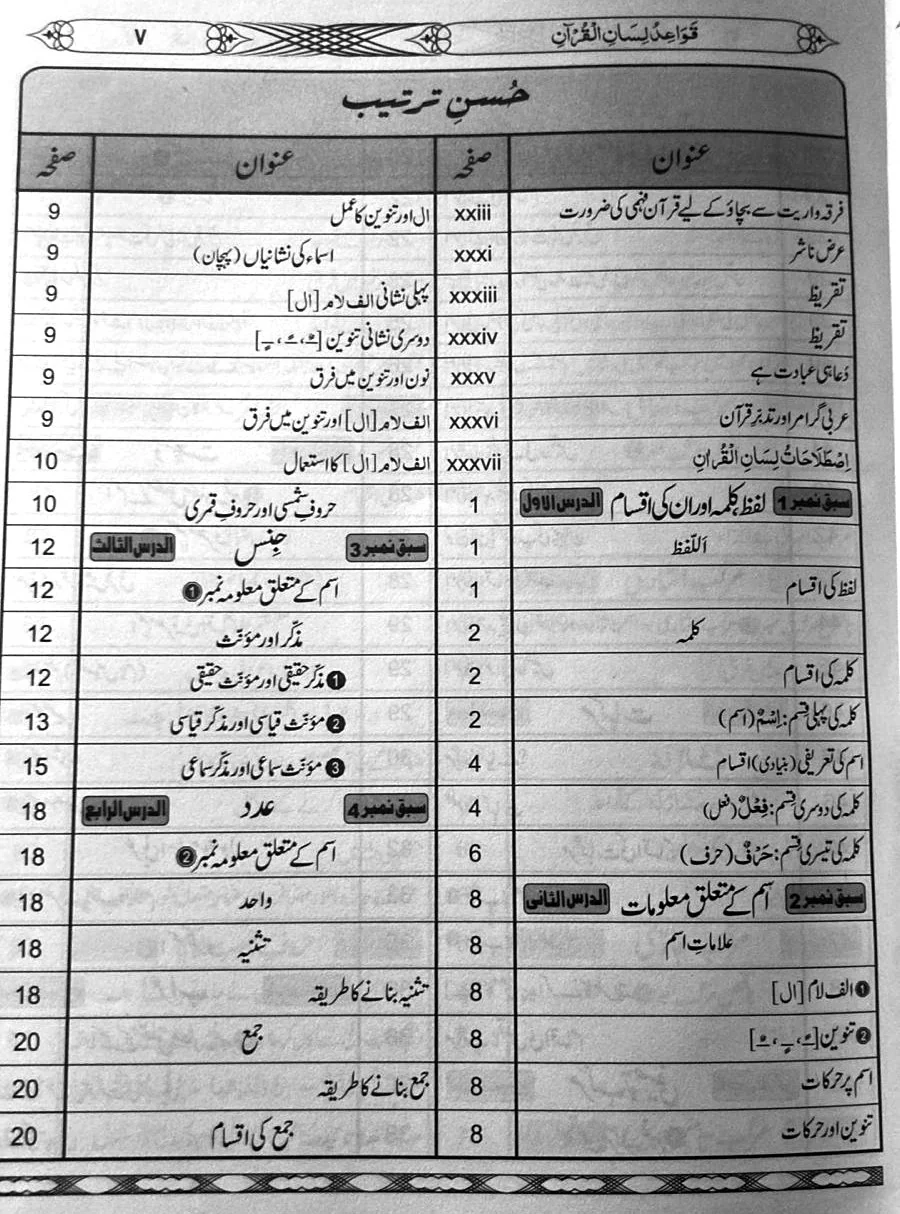 قَوَاعِدُ لِسَانِ الْقُرْآن ۷
حُسنِ ترتیب
عنوان صفحہ عنوان صفحہ
فرقہ واریت سے بچاؤ کے لیے قرآن فہمی کی ضرورت xxiii
عرض ناشر xxxi
تقریظ xxxiii
تقریظ xxxiv
دُعا ہی عبادت ہے xxxv
عربی گرامر اور تدبرِ قرآن xxxvi
اِصْطِلَاحَاتُ لِسَانِ الْقُرْاٰنِ xxxvii
سبق نمبر 1 لفظ، کلمہ اور ان کی اقسام الدرس الاول 1
اَللَّفظ 1
لفظ کی اقسام 1
کلمہ 2
کلمہ کی اقسام 2
کلمہ کی پہلی قِسم: اِسْمٌ (اسم) 2
اسم کی تعریفی (بنیادی) اقسام 4
کلمہ کی دوسری قِسم: فِعْلٌ (فعل) 4
کلمہ کی تیسری قِسم: حَرْفٌ (حرف) 6
سبق نمبر 2 اسم کے متعلق معلومات الدرس الثانی 8
علاماتِ اسم 8
❶ الف لام [ال] 8
❷ تنوین [ـً، ـٍ، ـٌ] 8
اسم پر حرکات 8
تنوین اور حرکات 8
ال اور تنوین کا عمل 9
اسماء کی نشانیاں (پہچان) 9
پہلی نشانی الف لام [ال] 9
دوسری نشانی تنوین [ـٌ، ـً، ـٍ] 9
نون اور تنوین میں فرق 9
الف لام [ال] اور تنوین میں فرق 9
الف لام [ال] کا استعمال 10
حروفِ شمسی اور حروفِ قمری 10
سبق نمبر 3 جِنس الدرس الثالث 12
اسم کے متعلق معلومہ نمبر ❶ 12
مذکّر اور مؤنّث 12
❶ مذکّر حقیقی اور مؤنّث حقیقی 12
❷ مؤنّث قیاسی اور مذکّر قیاسی 13
❸ مؤنّث سماعی اور مذکّر سماعی 15
سبق نمبر 4 عدد الدرس الرابع 18
اسم کے متعلق معلومہ نمبر ❷ 18
واحد 18
تثنیہ 18
تثنیہ بنانے کا طریقہ 18
جمع 20
جمع بنانے کا طریقہ 20
جمع کی اقسام 20